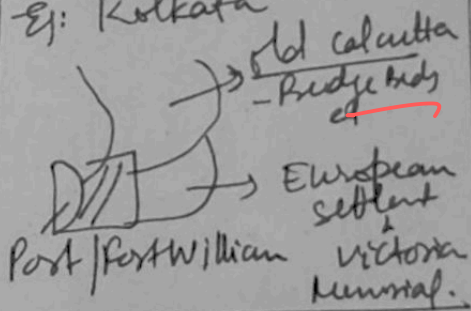 Eg: Kolkata
old Calcutta
- Budge Budg
et
European
settlent
&
Victoria
Memorial.
Port/FortWilliam